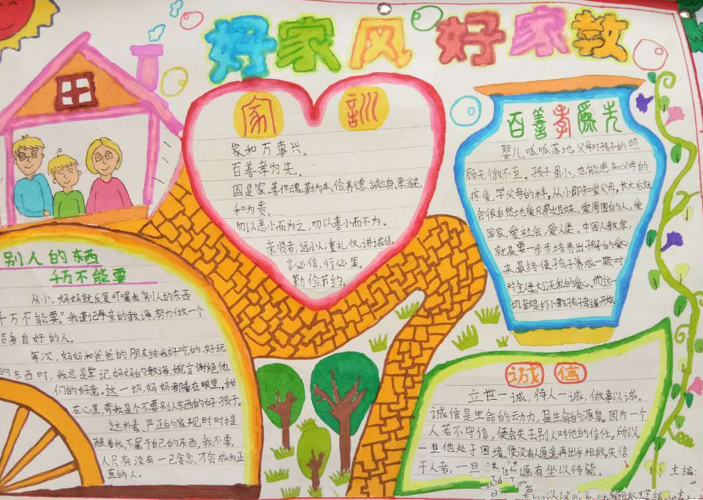 好家风 好家教
家训
家和万事兴。
百善孝为先。
国是家,善作魂,勤为本,俭养德,诚立身,孝当先,
和为贵。
勿以恶小而为之,勿以善小而不为。
亲贤者,远小人,重礼仪,讲诚信。
言必信,行必果。
勤俭节约。
百善孝为先
婴儿呱呱落地,父母对孩子的照
顾无微不至。孩子虽小,也能感知父母的
疼爱,学父母的样。从小即知爱父母,长大后就
会很自然地爱兄弟姐妹、爱周围的人,爱
国家,爱社会,爱人类。中国人教孝,
就是要一步步培养出孩子的爱心
来,最终使孩子养成一颗对
对全体大公无私的爱心。而这一
切是跟打小教孩子孝道开始
别人的东西
千万不能要
从小,妈妈就反复叮嘱我"别人的东西
千万不能要。"我谨记母亲的教诲,努力做一个
洁身自好的人。
每次,妈妈和爸爸的朋友给我好吃的、好玩
的东西时,我总是牢记妈妈的教诲,婉言谢绝他
们的好意。这一切,妈妈都看在眼里,甜
在心里,夸我是个不要别人东西的好孩子。
这好家严正的家规时时提
醒着我,不属于自己的东西,我不要。
人只有没有一己贪念,才会成为正
真的人。
诚信
立世一诚,待人一诚,做事以诚。
诚信是生命的动力,是生命的源泉。因为一个
人若不守信,便会失去别人对他的信任。所以
一旦他处于困境,便没有人愿意再出手相救。失信
于人者,一旦遭遇困境,遇有坐以待毙。
主编: